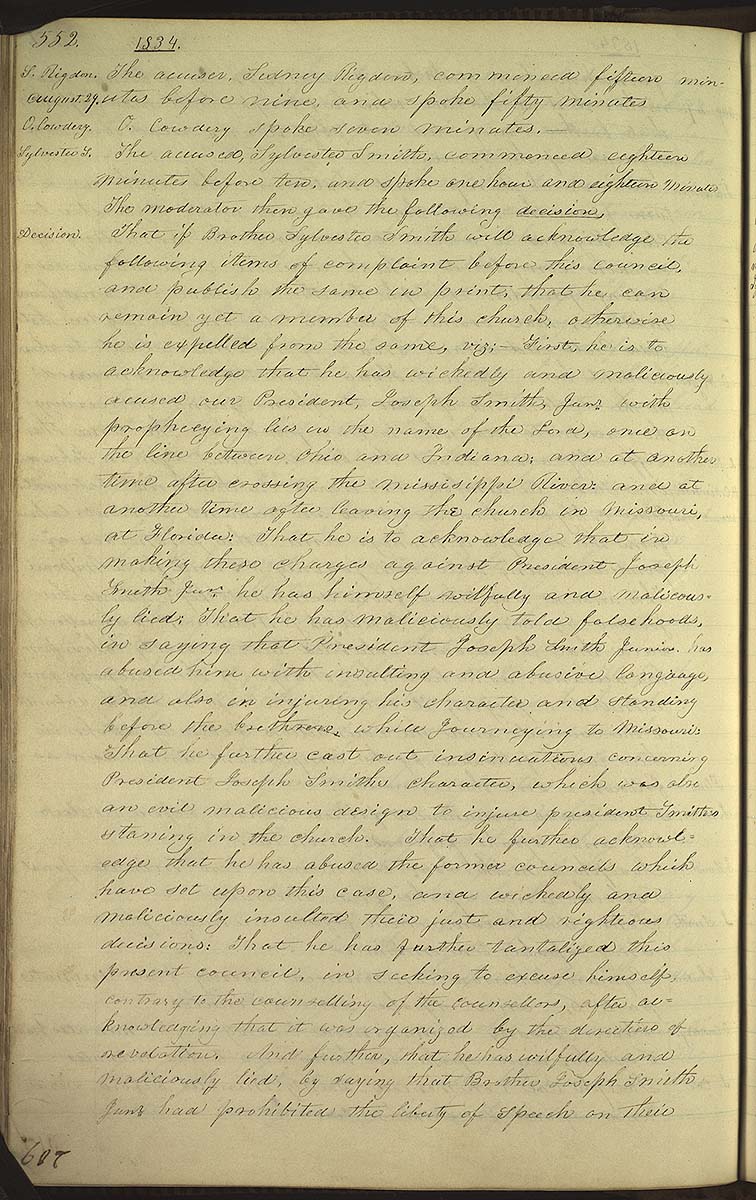 552.
1834.
S. Rigdon. The accuser, Sidney Rigdon, commenced fifteen min-
August 29. utes before nine, and spoke fifty minutes
O. Cowdery. O. Cowdery spoke seven minutes.—
Sylvester S. The accused, Sylvester Smith, commenced eighteen
minutes before ten, and spoke one hour and eighteen minutes
The moderator then gave the following decision,
Decision. That if Brother Sylvester Smith will acknowledge the
following items of complaint before this council,
and publish the same in print, that he can
remain yet a member of this church, otherwise
he is expelled from the same, viz;— First, he is to
acknowledge that he has wickedly and maliciously
accused our President, Joseph Smith, Junr. with
prophecying lies in the name of the Lord, once on
the line between Ohio and Indiana; and at another
time after crossing the missisippi River: and at
another time after leaving the church in Missouri,
at Florida: That he is to acknowledge that in
making these charges against President Joseph
Smith Junr. he has himself wilfully and malicous-
ly lied; That he has maliciously told falsehoods,
in saying that President Joseph Smith Junior. has
abused him with insulting and abusive language,
and also in injuring his character and standing
before the brethren, while Journeying to Missouri:
That he further cast out insinuations concerning
President Joseph Smiths character, which was also
an evil malicious design to injure president Smith's
staning in the church. That he further acknowl=
edge that he has abused the former councils which
have set upon this case, and wickedly and
maliciously insulted their just and righteous
decisions: That he has further tantalized this
present council, in seeking to excuse himself,
contrary to the counselling of the counsellors, after ac=
knowledging that it was organized by the direction of
revelation. And further, that he has wilfully and
maliciously lied, by saying that Brother Joseph Smith
Junr had prohibited the liberty of speech on their